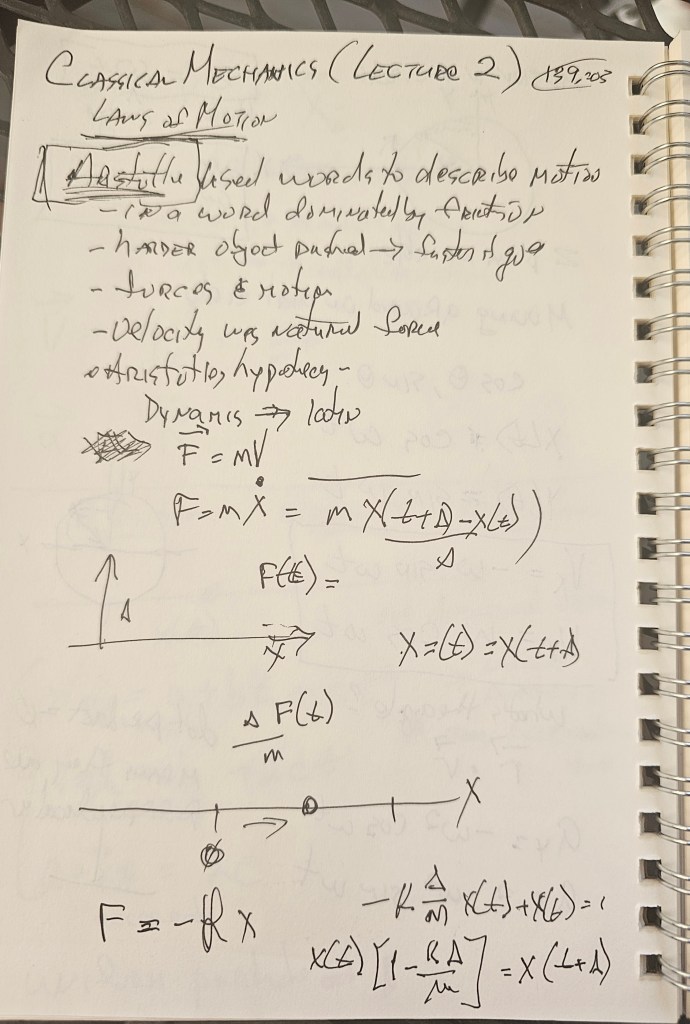 CLASSICAL MECHANICS (LECTURE 2)
LAWS of MOTION
Aristotle used words to describe motion
- in a word dominated by friction
- HARDER object pushed → faster it goes
- forces & motion
- velocity was natural force
Aristotles hypothesis -
DYNAMICS ⇒
F = mV
F = m Ẋ = m X(t+Δ) - X(t)) / Δ
F(t) =
Δ
X
X = (t) = X(t+Δ)
Δ F(t) / m
X
F = -k x
-k Δ/m X(t) + X(t) =
X(t) [1 - kΔ/m] = X(t+Δ)